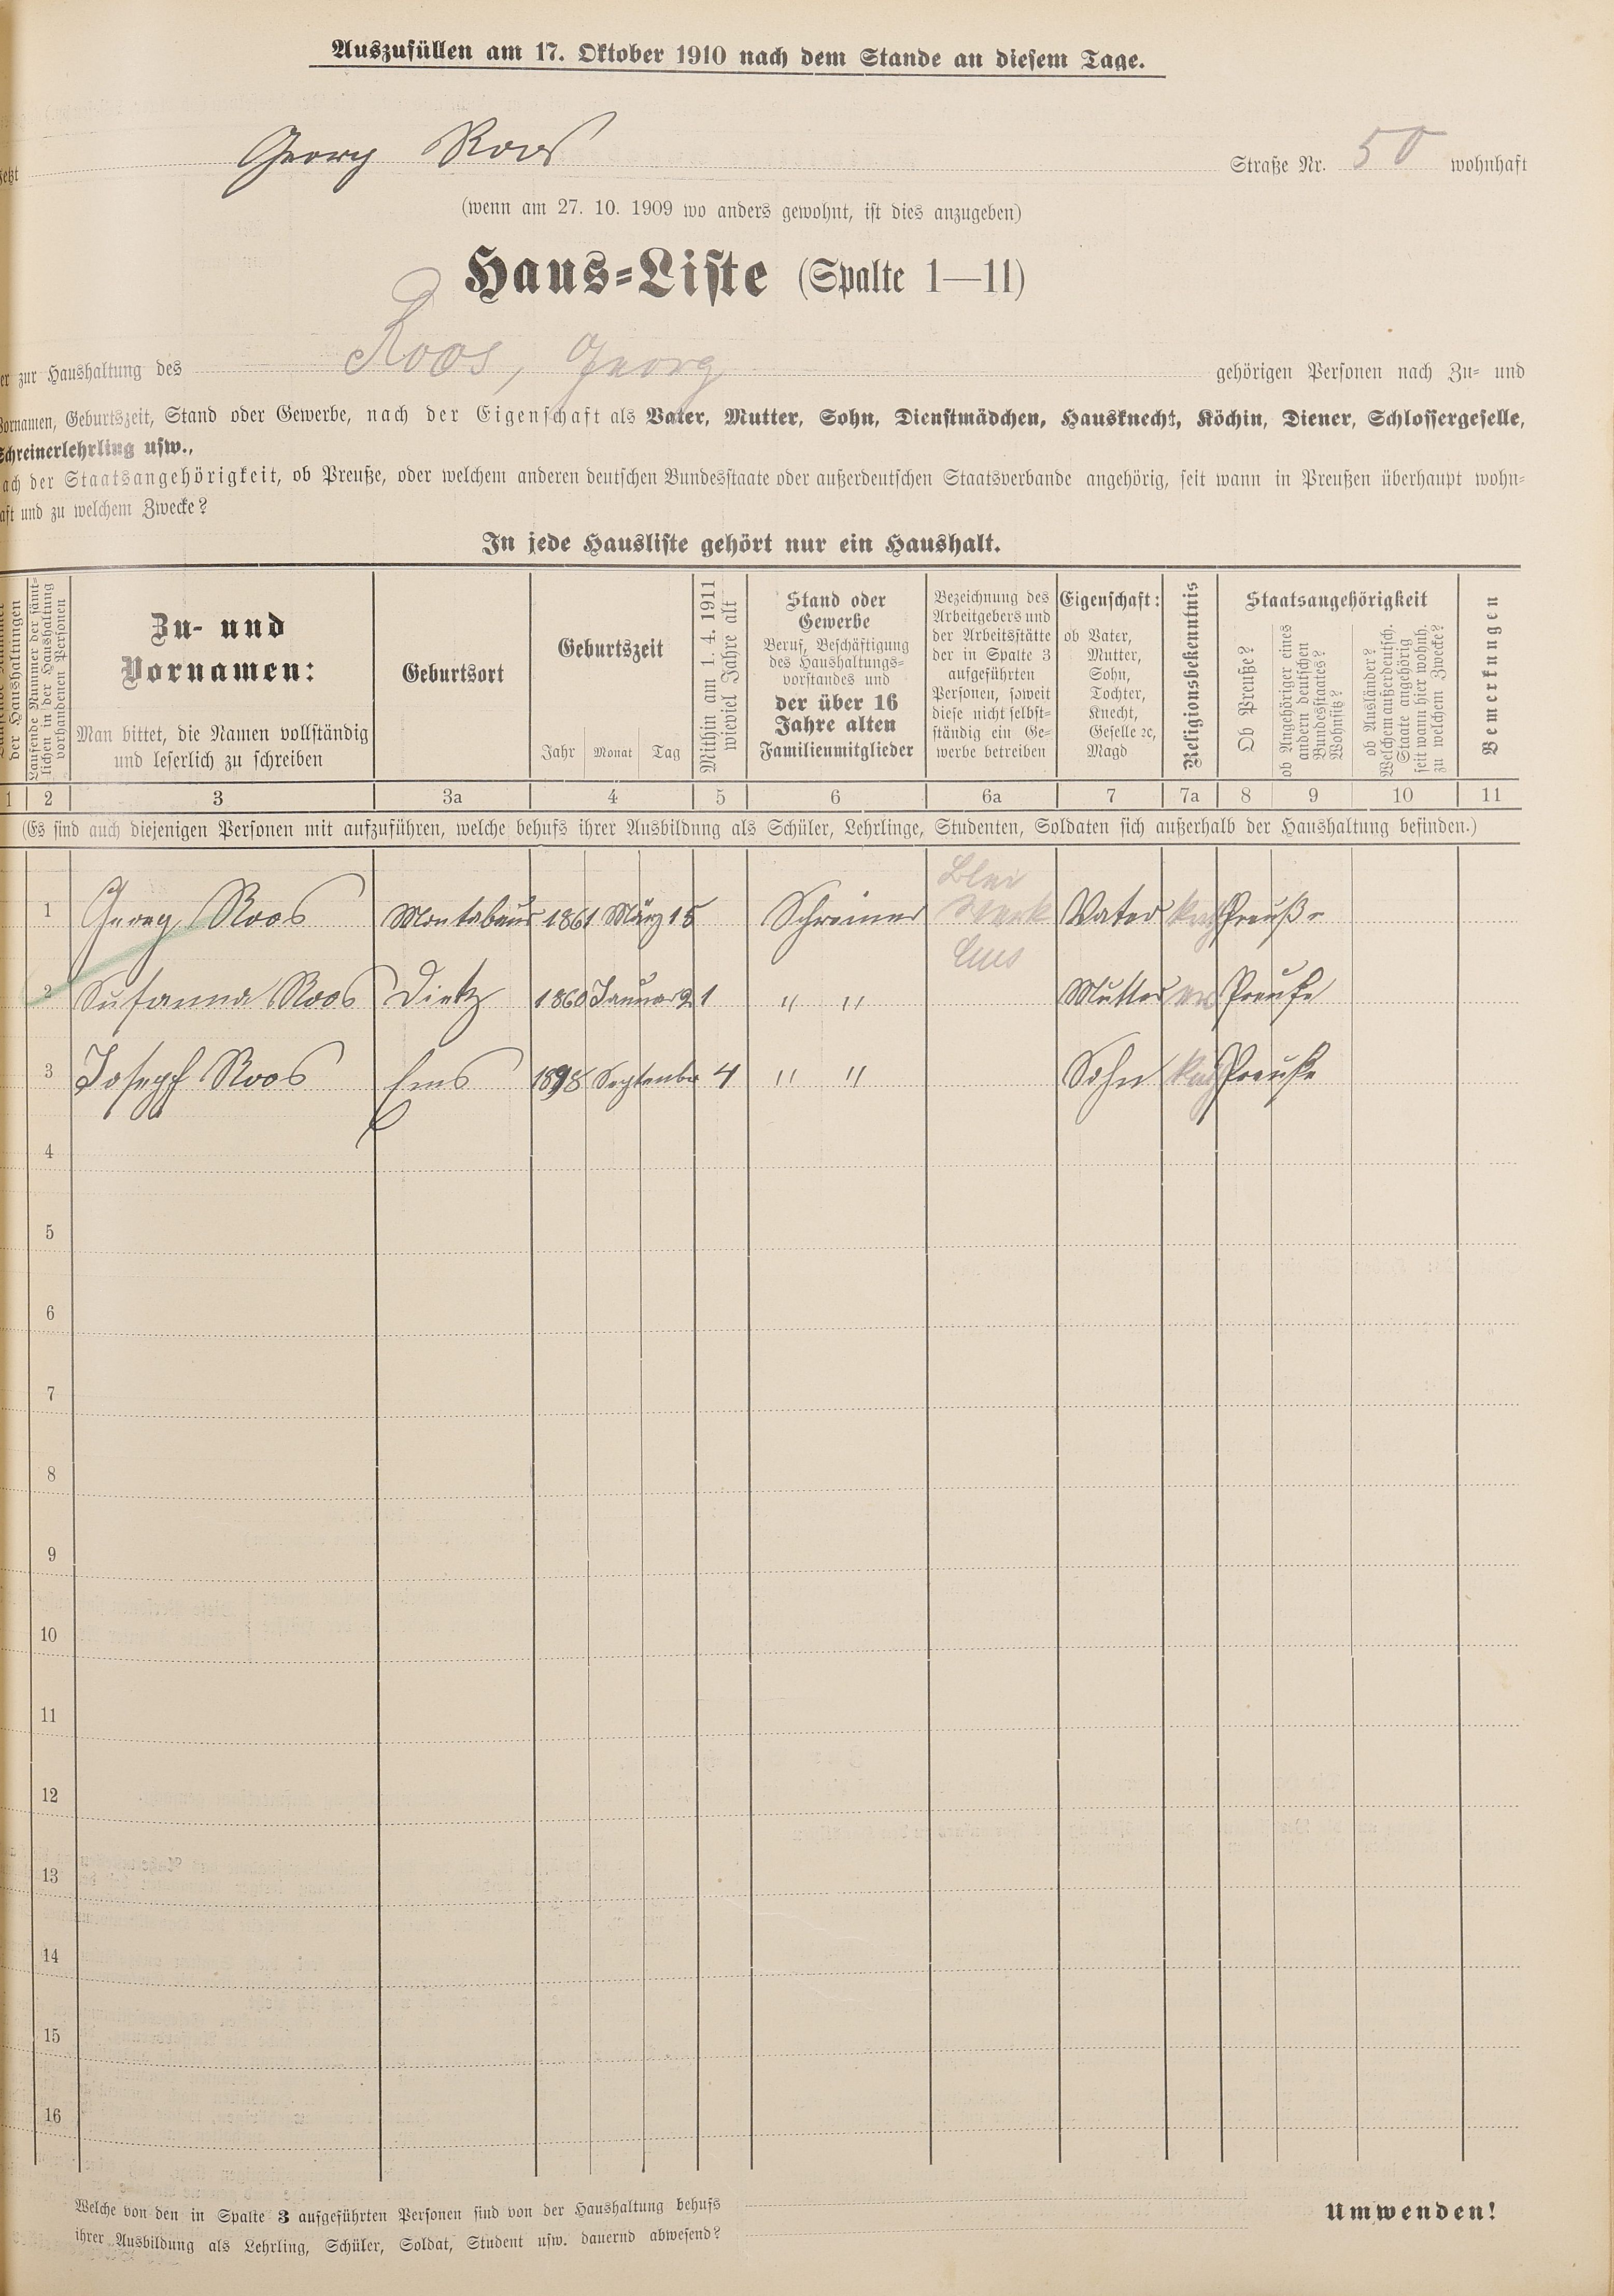 Auszufüllen am 17. Oktober 1910 nach dem Stande an diesem Tage.
jetzt Georg Roos Straße Nr. 50 wohnhaft
(wenn am 27. 10. 1909 wo anders gewohnt, ist dies anzugeben)
Haus-Liste (Spalte 1—11)
er zur Haushaltung des Roos, Georg gehörigen Personen nach Zu- und
Vornamen, Geburtszeit, Stand oder Gewerbe, nach der Eigenschaft als Vater, Mutter, Sohn, Dienstmädchen, Hausknecht, Köchin, Diener, Schlossergeselle,
Schreinerlehrling usw.,
ach der Staatsangehörigkeit, ob Preuße, oder welchem anderen deutschen Bundesstaate oder außerdeutschen Staatsverbande angehörig, seit wann in Preußen überhaupt wohn-
aft und zu welchem Zwecke?
In jede Hausliste gehört nur ein Haushalt.
der Haushaltungen
Laufende Nummer der sämt-
lichen in der Haushaltung
vorhandenen Personen
Zu- und
Vornamen:
Man bittet, die Namen vollständig
und leserlich zu schreiben
Geburtsort
Geburtszeit
Jahr Monat Tag
Mithin am 1. 4. 1911
wieviel Jahre alt
Stand oder
Gewerbe
Beruf, Beschäftigung
des Haushaltungs-
vorstandes und
der über 16
Jahre alten
Familienmitglieder
Bezeichnung des
Arbeitgebers und
der Arbeitsstätte
der in Spalte 3
aufgeführten
Personen, soweit
diese nicht selbst-
ständig ein Ge-
werbe betreiben
Eigenschaft:
ob Vater,
Mutter,
Sohn,
Tochter,
Knecht,
Geselle ꝛc,
Magd
Religionsbekenntnis
Staatsangehörigkeit
Ob Preuße?
ob Angehöriger eines
andern deutschen
Bundesstaates?
Wohnsitz?
ob Ausländer?
Welchem außerdeutsch.
Staate angehörig
seit wann hier wohnh.
zu welchem Zwecke?
Bemerkungen
1 2 3 3a 4 5 6 6a 7 7a 8 9 10 11
(Es sind auch diejenigen Personen mit aufzuführen, welche behufs ihrer Ausbildung als Schüler, Lehrlinge, Studenten, Soldaten sich außerhalb der Haushaltung befinden.)
1 Georg Roos Montabaur 1861 März 15 Schreiner Blei Werk Ems Vater kath Preuße
2 Susanna Roos Dietz 1860 Januar 21 " " Mutter ev Preuße
3 Joseph Roos Ems 1898 September 4 " " Sohn kath Preuße
4
5
6
7
8
9
10
11
12
13
14
15
16
Welche von den in Spalte 3 aufgeführten Personen sind von der Haushaltung behufs
ihrer Ausbildung als Lehrling, Schüler, Soldat, Student usw. dauernd abwesend?
Umwenden!